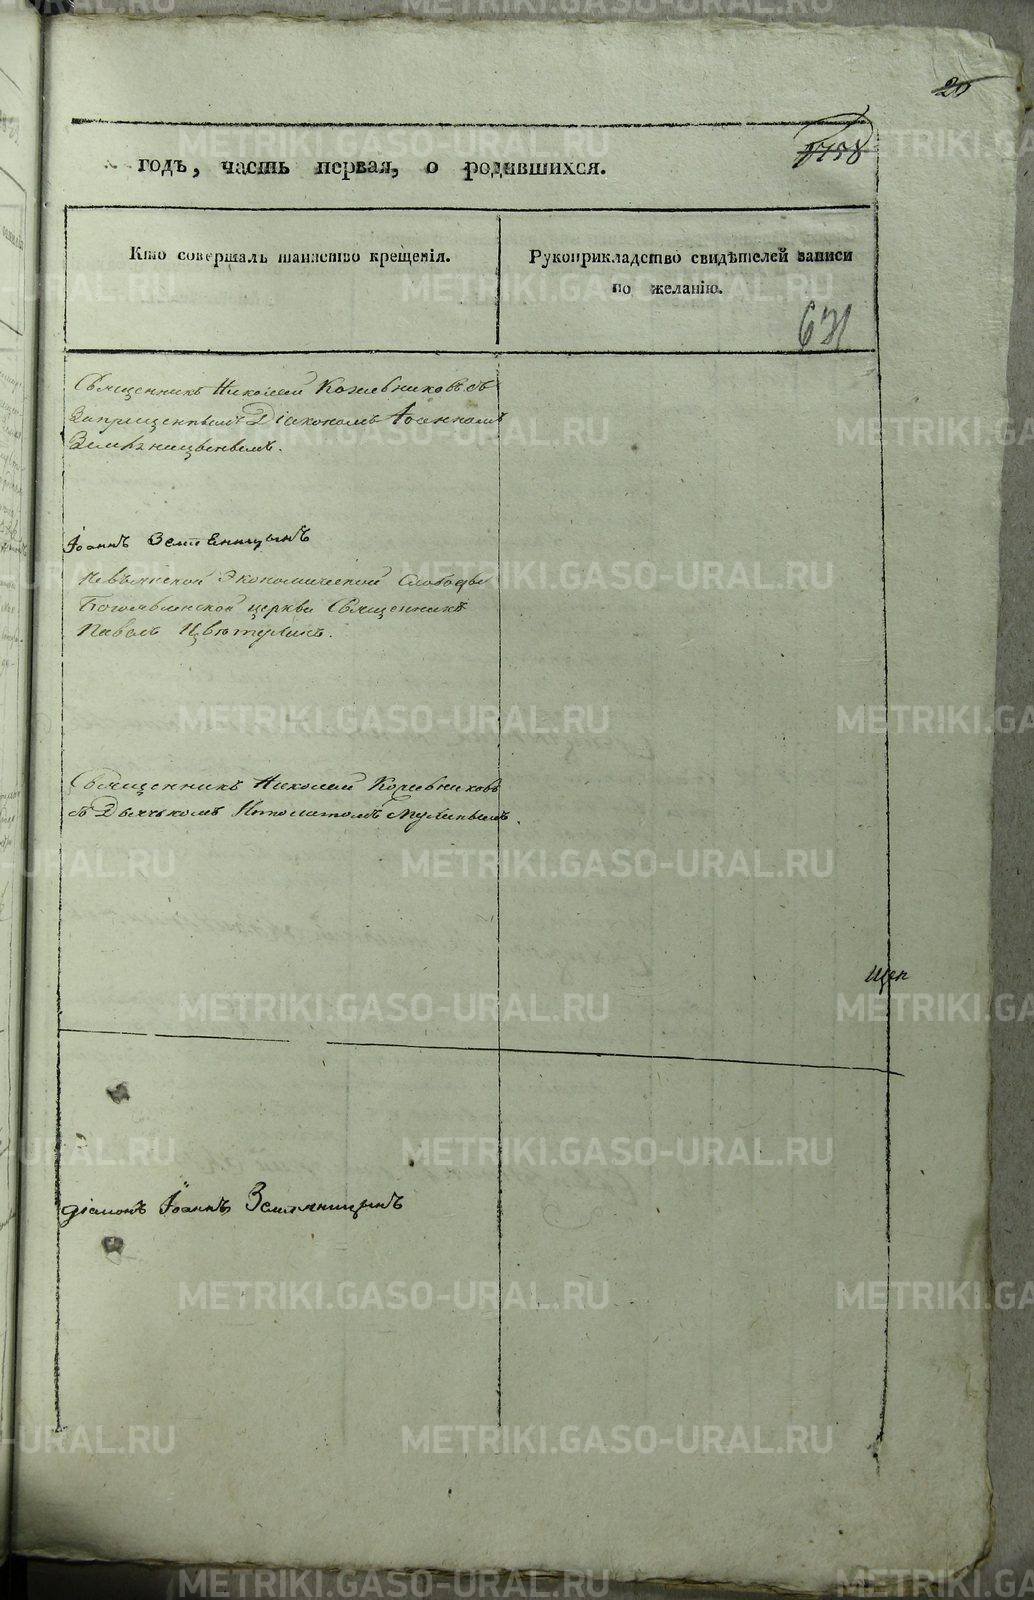 20
1758
годъ, часть первая, о родившихся.
Кто совершалъ таинство крещенія.
Рукоприкладство свидѣтелей записи
по желанію.
631
Священникъ Николай Кожевниковъ съ
Запрещеннымъ Діакономъ Іоанномъ
Земляницынымъ.
Іоаннъ Земляницынъ
Невьянской Экономической Слободы
Богоявленской церкви Священникъ
Павелъ
Священникъ Николай Кожевниковъ
съ Дьячкомъ
діаконъ Іоаннъ Земляницынъ
METRIKI.GASO-URAL.RU